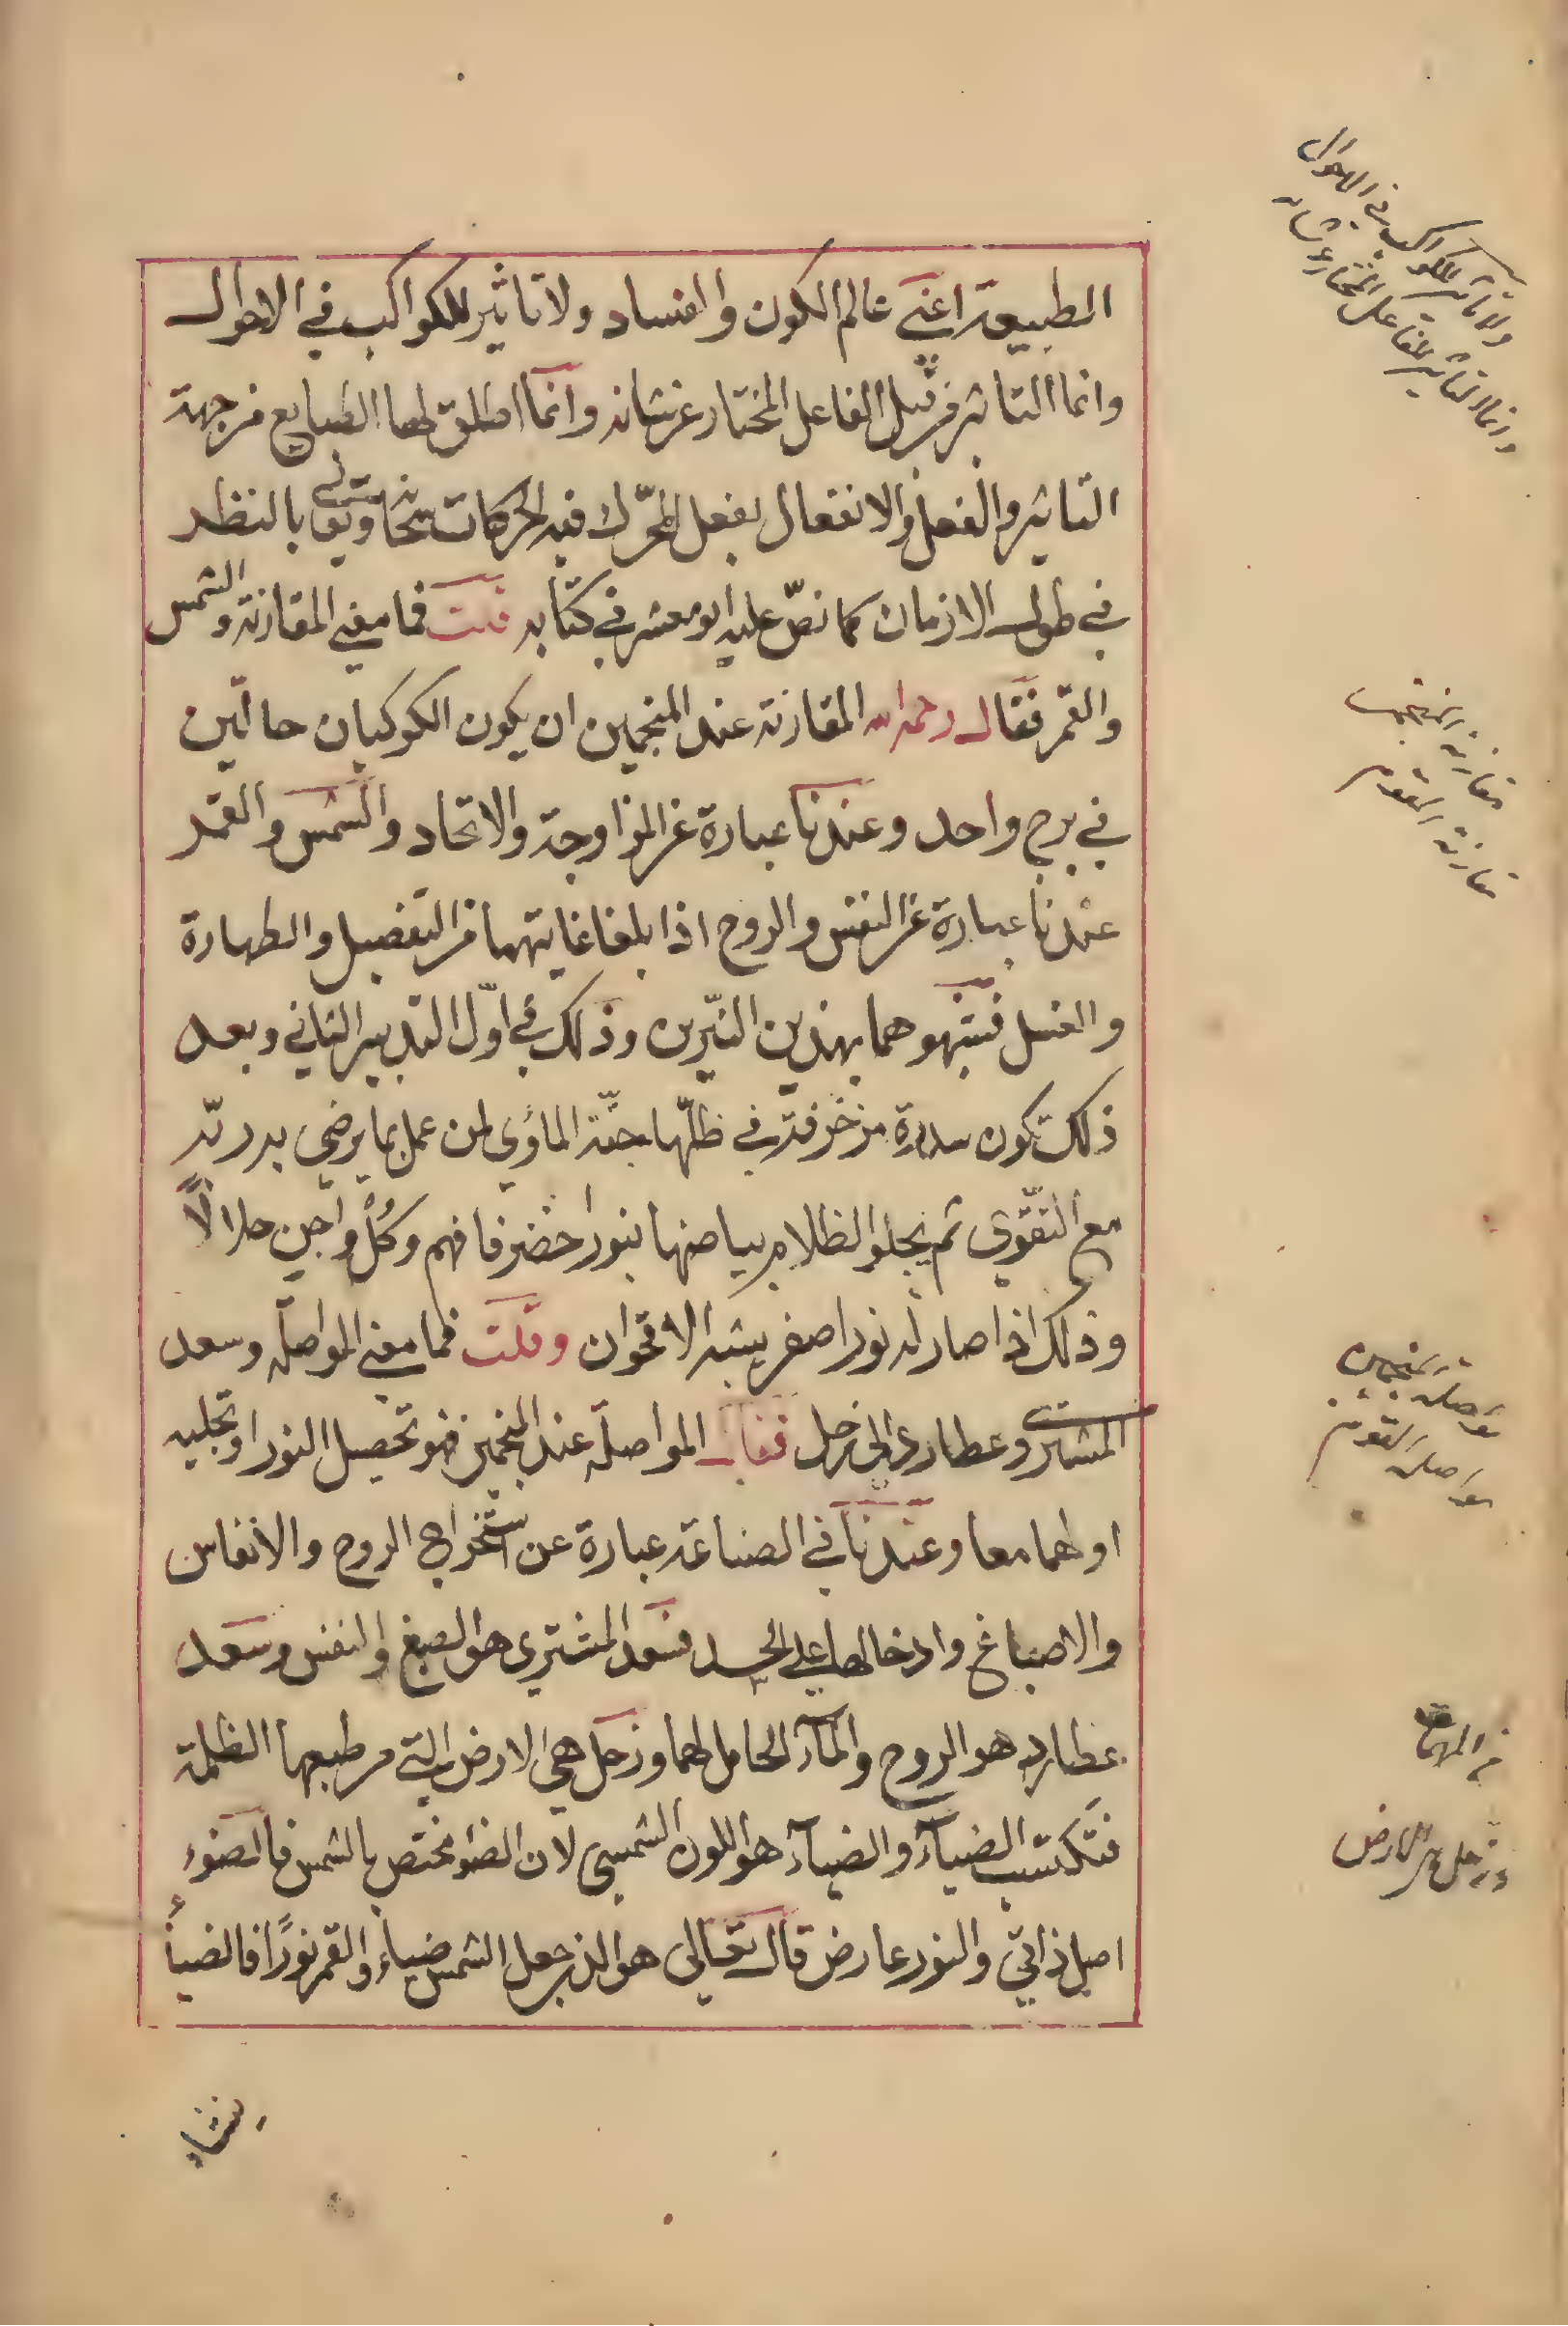 الطبيعة اعنى عالم الكون والفساد ولا تاثير للكواكب في الاحوال
وانما التاثير من قبل الفاعل المختار عز شانه وانما اطلق لها الطبايع من جهة
التاثير والفعل والانفعال بفعل المحرك فيه الحركات سبحانه وتعالى بالنظر
في طول الازمان كما نصّ عليه ابو معشر في كتابه قلت فما معنى المقارنة والشمس
والقمر فقال رحمه الله المقارنة عند المنجمين ان يكون الكوكبان حالّين
في برج واحد وعندنا عبارة عن المزاوجة والاتحاد والشمس والقمر
عندنا عبارة عن النفس والروح اذا بلغا غايتهما من التفصيل والطهارة
والغسل فشبهوهما بهذين النيّرين وذلك في اوّل التدبير الثاني وبعد
ذلك تكون سدرة مزخرفة في ظلّها جنّة المأوي لمن عمل بما يرضي به ربّه
مع التقوّى ثم يجلو الظلام بياضها بنور اخضر فافهم وكُلْ واجن حلالاً
وذلك اذا صار له نور اصفر يشبه الاقحوان وقلت فما معنى المواصلة وسعد
المشترى وعطارد الى زحل فقال المواصلة عند المنجمين فهو تحصيل النور او تجليه
او لهما معا وعندنا في الصناعة عبارة عن استخراج الروح والانفاس
والاصباغ وادخالها على الجسد فسعد المشتري هو الصبغ والنفس وسعد
عطارد هو الروح والمآء الحامل لهما وزحل هي الارض التي من طبعها الظلمة
فتكتسب الضيآء والضيآء هو اللون الشمسي لان الضوء مختص بالشمس فالضوء
اصل ذاتي والنور عارض قال تعالى هو الذي جعل الشمس ضياء والقمر نورًا فالضيآء
ولا تاثير للكواكب في الاحوال
وانما التاثير للفاعل المختار عز شانه
مقارنة المنجمين
مقارنة القوم
مواصلة المنجمين
مواصلة القوم
من المهمات
وزحل هي الارض